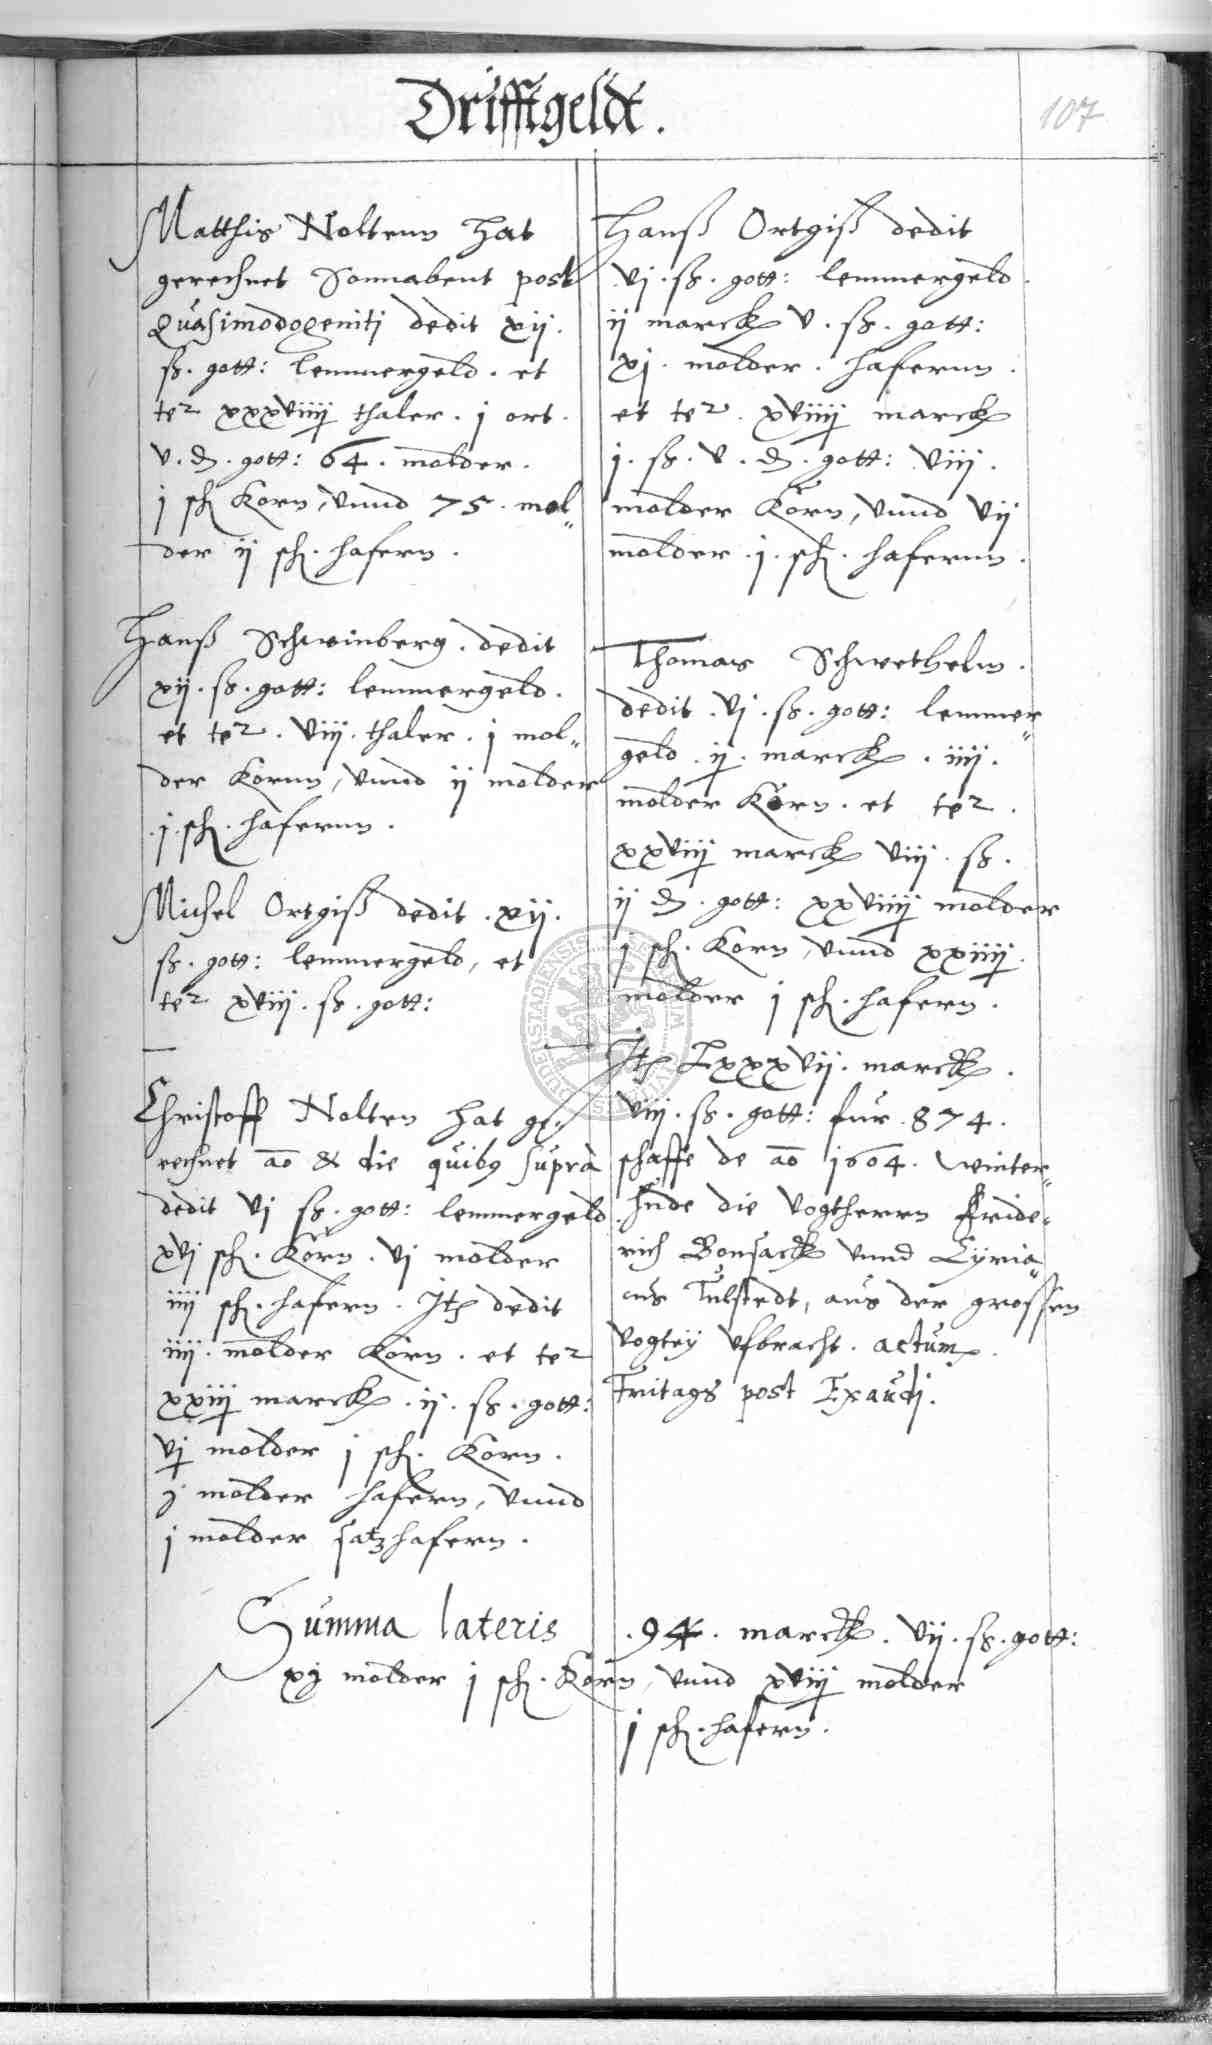 Drifftgeldt.
107
Matthis Noltenn hat
gerechnet Sonnabent post
Quasimodogeniti dedit xij.
ß. gott: lemmergeld. et
ter xxxviiij thaler. j ort.
v. d. gott: 64. molder.
j sch Korn, vnnd 75. mol„
der ij sch. hafern.
Hanß Schweinberg. dedit
xij. ß. gott: lemmergeld.
et ter. viij. thaler. j mol„
der Kornn, vnnd ij molder
.j. sch. hafernn.
Michel Ortgiß dedit. xij.
ß. gott: lemmergeld, et
ter xviij. ß. gott:
Christoff Nolten hat ge„
rechnet ao & die quibus supra
dedit vj ß. gott: lemmergeld
xvj sch. Korn. vj molder
iiij sch. hafern. Jt dedit
iiij. molder Korn. et ter
xxiij marck. ij. ß. gott:
vj molder j sch. Korn.
j molder hafern, vnnd
j molder satzhafern.
Hanß Ortgiß dedit
vj. ß. gott: lemmergeld.
ij marck v. ß. gott:
xj. molder. hafernn.
et ter. xviiij marck
j. ß. v. d. gott: viij.
molder Korn, vnnd vij
molder. j. sch. hafernn.
Thomas Schwethelm.
dedit. vj. ß. gott: lemmer„
geld. ij. marck. iiij.
molder Korn. et ter.
xxviij marck viij. ß.
ij d. gott: xxviiij molder
j sch. Korn, vnnd xxiiij.
molder j sch. hafern.
Jt Lxxxvij. marck.
viij. ß. gott: fur. 874.
schaffe de ao 1604. winter„
hude die Vogtherrn Fride„
rich Bonsack vnnd Cyria„
cus Tulstedt, aus der grossen
Vogtey vfbracht. actum.
Freitags post Exaudi.
Summa lateris . 94. marck. vij. ß. gott:
xj molder j sch. Korn, vnnd xviij molder
j sch. hafern.
SIGILLUM CIVITATIS DUDERSTADIENSIS